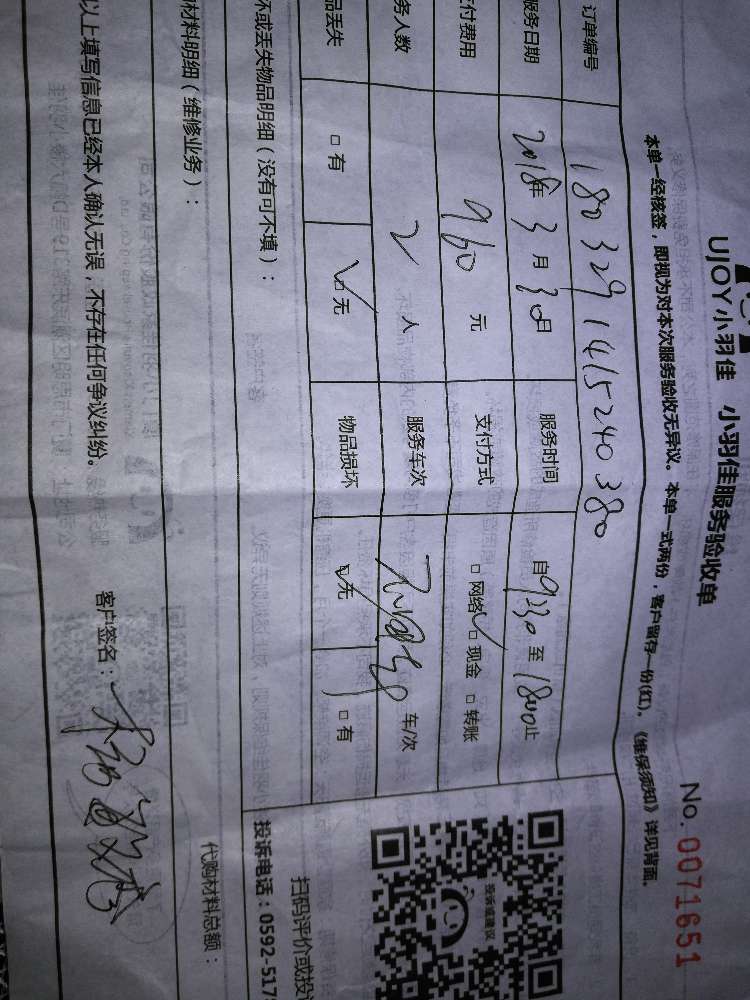 UJOY小羽佳 小羽佳服务验收单
No. 0071651
本单一经核签，即视为对本次服务验收无异议。本单一式两份，客户留存一份(红)。《维保须知》详见背面。
订单编号 1803291415240380
服务日期 2018年3月30日 服务时间 自9:30至1800止
付费用 960元 支付方式 □网络 ✓□现金 □转账
务人数 2人 服务车次 车/次
品丢失 □有 ✓□无 物品损坏 ☑无 □有
坏或丢失物品明细（没有可不填）：
材料明细（维修业务）：
代购材料总额：
以上填写信息已经本人确认无误，不存在任何争议纠纷。 客户签名：
投诉或建议
扫码评价或投
投诉电话：0592-517